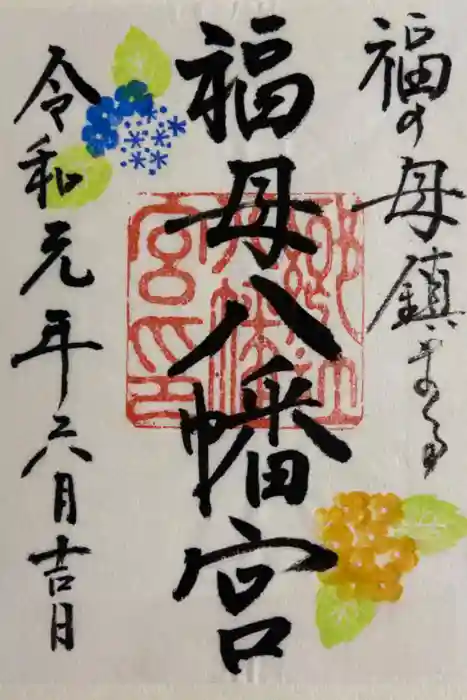 福の母鎮まる
福母八幡宮
令和元年六月吉日